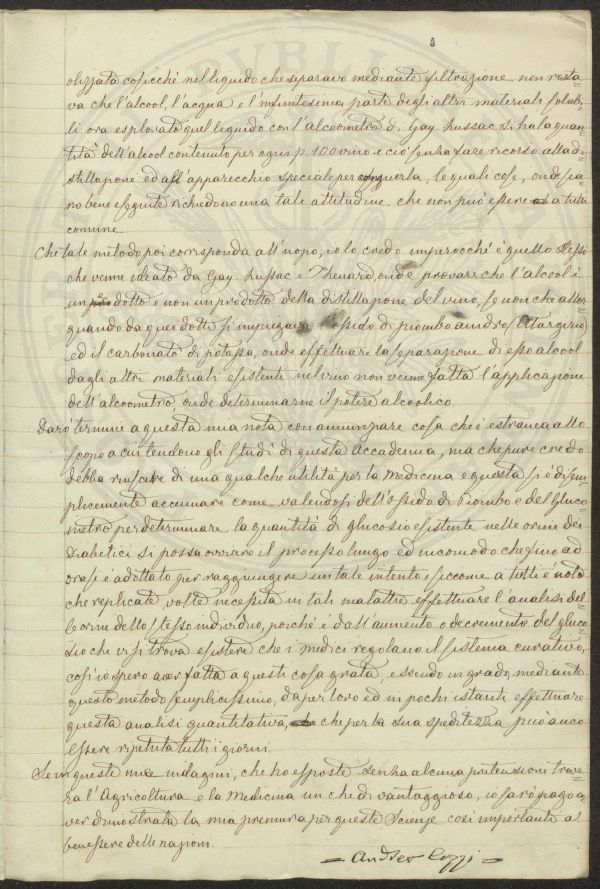 olizzata cosicché nel liquido che separavo mediante filtrazione non resta
va che l'alcool, l'acqua e l'infinitesima parte degli altri materiali solub-
li ora esplorato quel liquido con l'alcoometro di Gay hussac si ha la quan
tità dell'alcool contenuto per ogni p. 100 vino e ciò senza fare ricorso alla di
stillazione ed all'apparecchio speciale per eseguerla, le quali cose, onde sia
no bene eseguite richiedono una tale attitudine che non può essere a tutti
comune.
Che tale metodo poi corrisponda all'uopo, io lo credo imperocché è quello stesso
che venne ideato da Gay-hussac e Thenard, onde provare che l'alcool è
un edotto e non un prodotto della distillazione del vino, se non che allor
quando da quei dotti si impiegava l'ossido di piombo anidro (Litargirio)
ed il carbonato di potassa, onde effettuare la separazione di esso alcool
dagli altri materiali esistenti nel vino non venne fatta l'applicazione
dell'alcoometro onde determinarne il potere alcoolico.
Darò termine a questa mia nota con annunziare cosa che è estranea allo
scopo a cui tendono gli studi di questa Accademia, ma che pure credo
debba riuscire di una qualche utilità per la Medicina e questa si è di sem
plicemente accennare come valendosi dell'ossido di Piombo e del Gluco
metro per determinare la quantità di glucosio esistente nelle orine dei
diabetici si possa ovviare il processo lungo ed incomodo che fino ad
ora si è adottato per raggiungere un tale intento, siccome a tutti è noto
che replicate volte necessita in tali malattie effettuare l'analisi del
le orine dello stesso individuo, poiché è dall'aumento o decremento del gluco
sio che vi si trova esistere che i medici regolano il sistema curativo,
così io spero aver fatta a questi cosa grata, essendo in grado, mediante
questo metodo semplicissimo, da per loro ed in pochi istanti effettuare
questa analisi quantitativa, che per la sua speditezza può anco
essere ripetuta tutti i giorni.
Se in queste mie indagini, che ho esposte senza alcuna pretensione trove
rà l'Agricoltura e la Medicina un che di vantaggioso, io sarò pago a
ver dimostrata la mia premura per queste Scienze così importanti al
benessere delle nazioni.
- Andrea Cozzi -